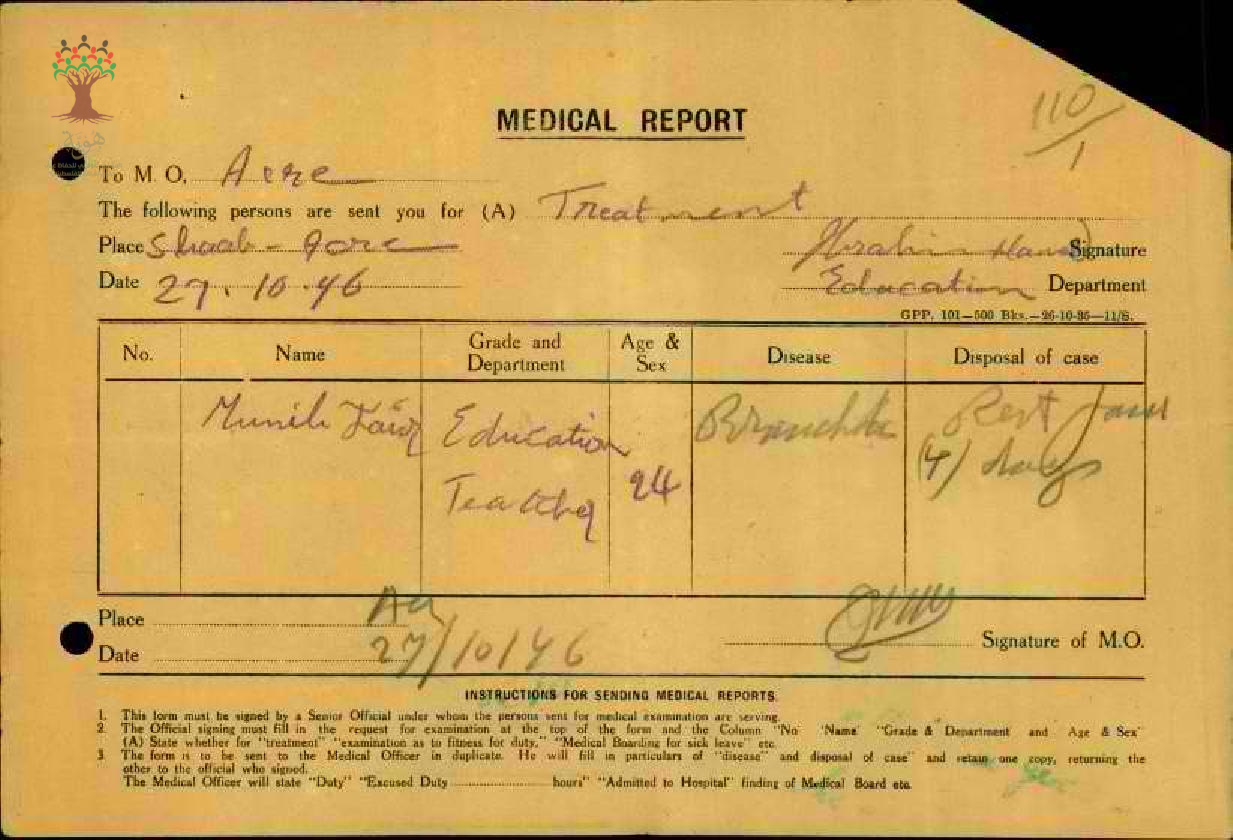 110/1
MEDICAL REPORT
To M. O. Acre
The following persons are sent you for (A) Treatment
Place Shaab - Acre
Signature
Date 27.10.46
Education Department
GPP. 101—500 Bks.—26-10-35—11/S.
No. Name Grade and Department Age & Sex Disease Disposal of case
Munib Education Rest four
Teacher 24 (4) days
Place
Date 27/10/46
Signature of M.O.
INSTRUCTIONS FOR SENDING MEDICAL REPORTS.
1. This form must be signed by a Senior Official under whom the persons sent for medical examination are serving.
2. The Official signing must fill in the request for examination at the top of the form and the Column "No 'Name' "Grade & Department and Age & Sex"
(A) State whether for "treatment" "examination as to fitness for duty," "Medical Boarding for sick leave" etc.
3 The form is to be sent to the Medical Officer in duplicate. He will fill in particulars of "disease" and disposal of case" and retain one copy, returning the
other to the official who signed.
The Medical Officer will state "Duty" "Excused Duty hours" "Admitted to Hospital" finding of Medical Board etc.